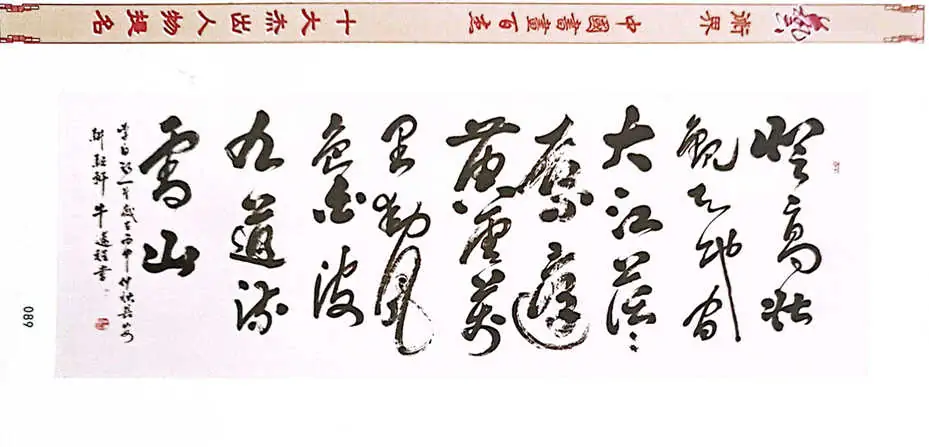 中國書畫百杰
十大杰出人物提名
登高壮
觀天地間
大江茫〻
去不還
黄雲萬
里動風
色白波
九道流
雪山
李白詩一首歲在丙申仲秋長安
牛遠程書
089